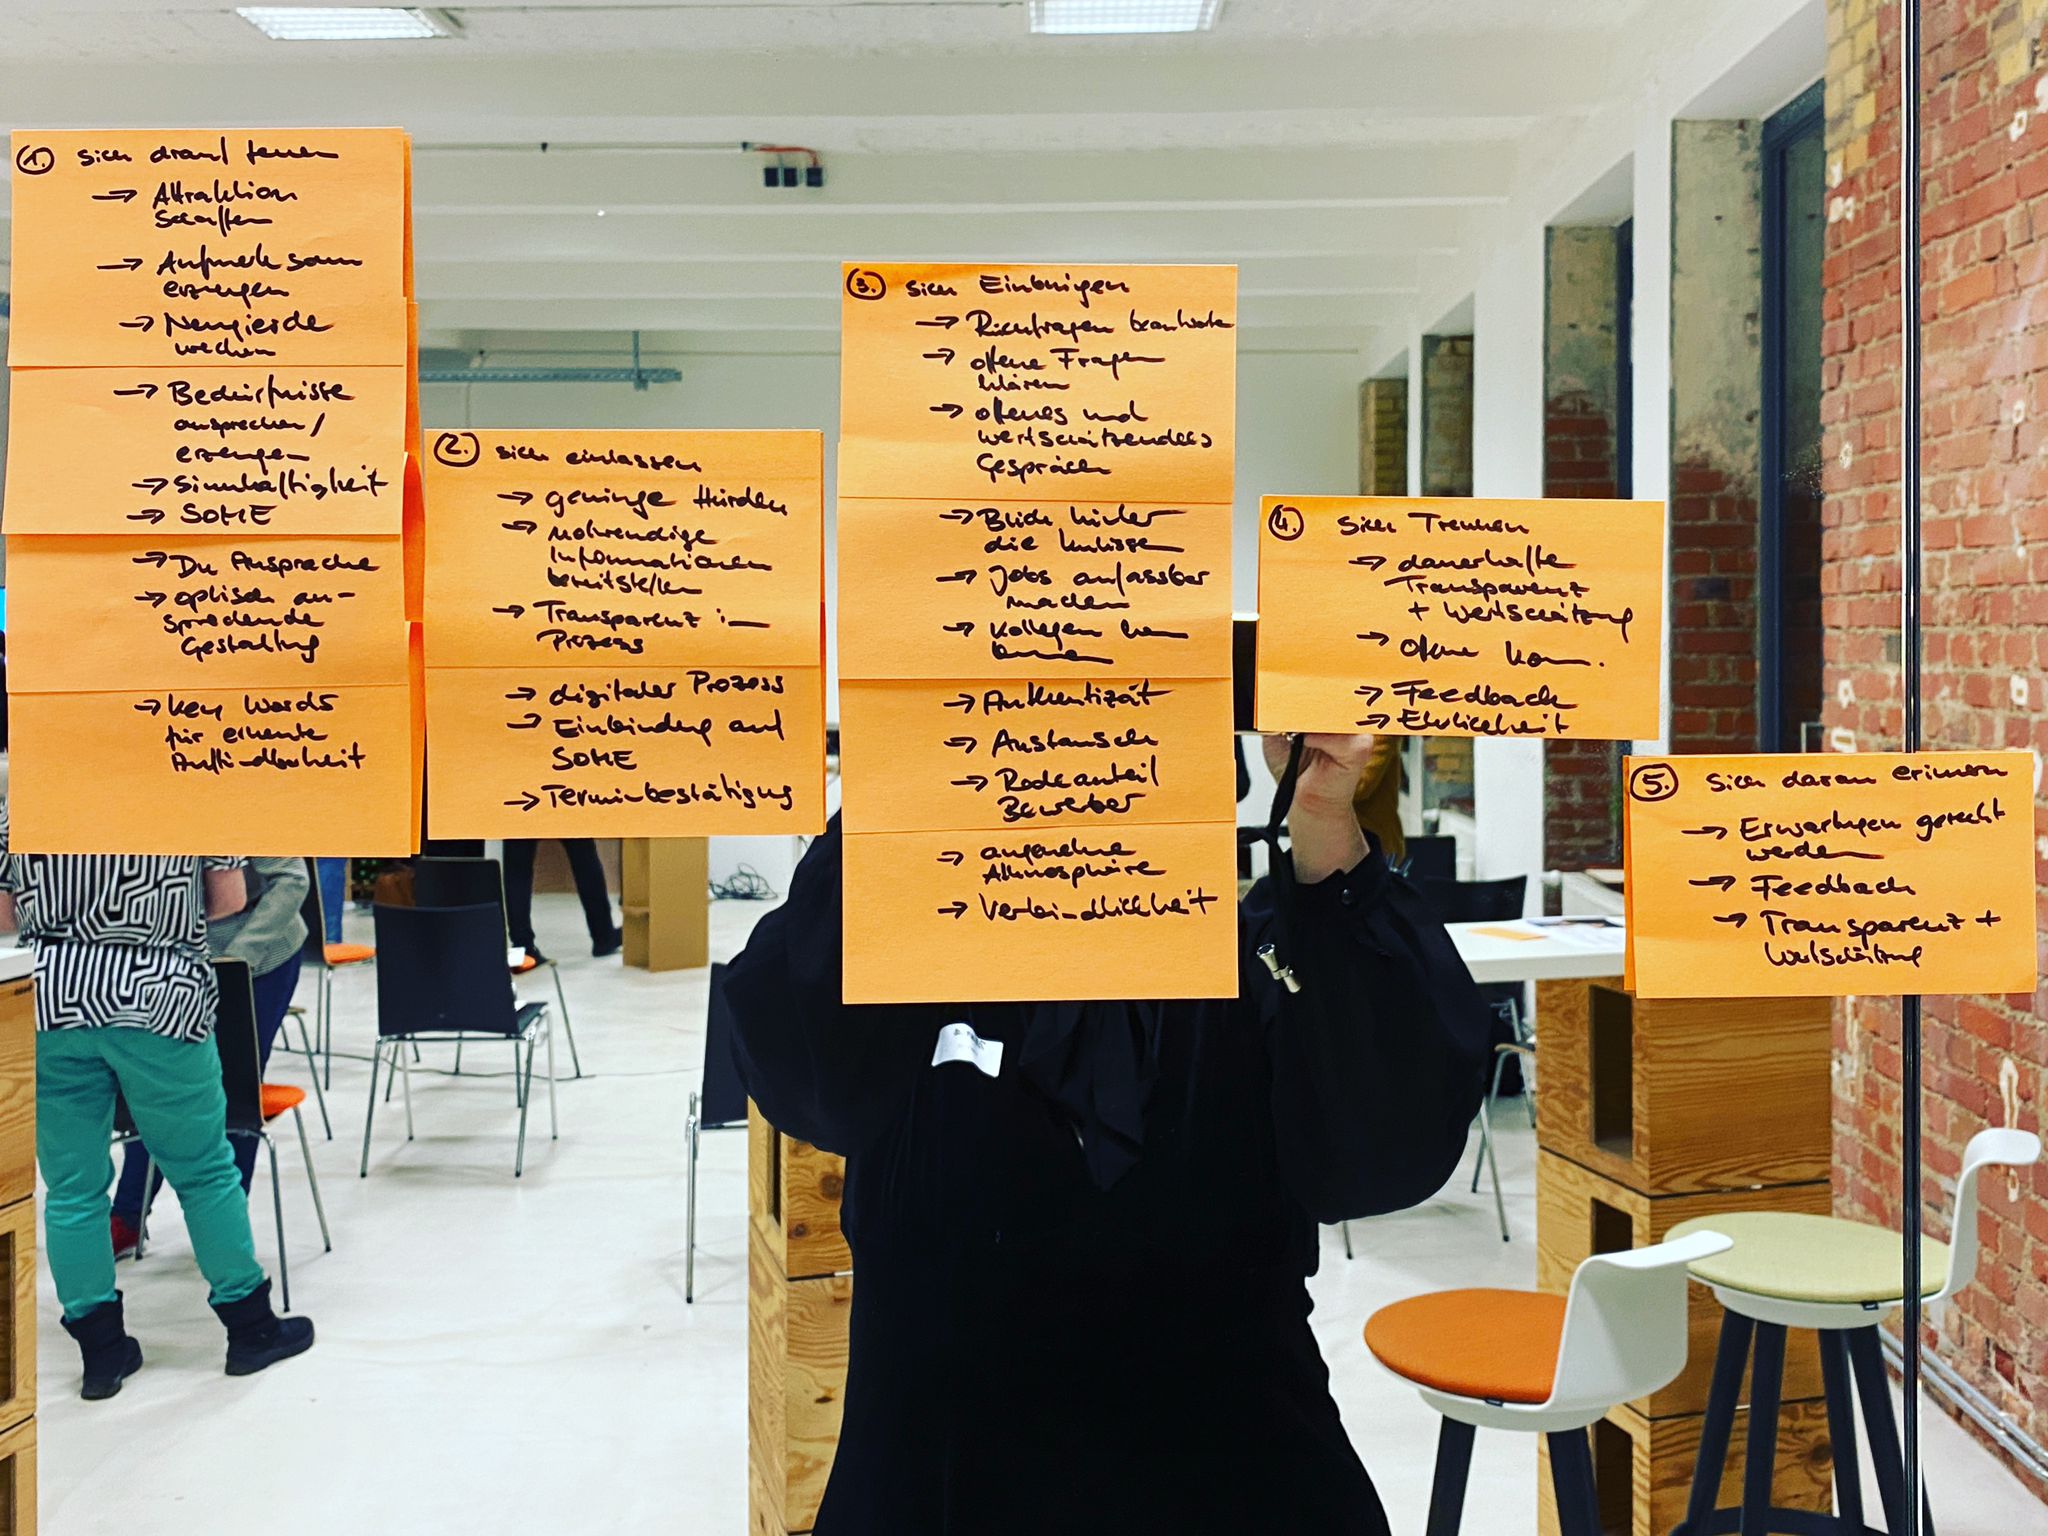 1. sich drauf freuen
→ Attraktion
schaffen
→ Aufmerksam
erzeugen
→ Neugierde
wecken
→ Bedürfnisse
ansprechen/
erzeugen
→ Sinnhaftigkeit
→ SOME
→ Du Ansprache
→ optisch an-
sprechende
Gestaltung
→ Key Words
für
Auffindbarkeit
2. sich einlassen
→ geringe Hürden
→ notwendige
Informationen
bereitstellen
→ Transparenz im
Prozess
→ digitaler Prozess
→ Einbindung auf
SOME
→ Terminbestätigung
3. sich Einbringen
→ Rückfragen beantworten
→ offene Fragen
klären
→ offenes und
wertschätzendes
Gespräch
→ Blick hinter
die Kulissen
→ Jobs anfassbar
machen
→ Kollegen kennen
lernen
→ Authentizität
→ Austausch
→ Redeanteil
Bewerber
→ angenehme
Atmosphäre
→ Verbindlichkeit
4. sich Trennen
→ dauerhafte
Transparenz
+ Wertschätzung
→ offene Kom.
→ Feedback
→ Ehrlichkeit
5. sich daran erinnern
→ Erwartungen gerecht
werden
→ Feedback
→ Transparenz +
Wertschätzung